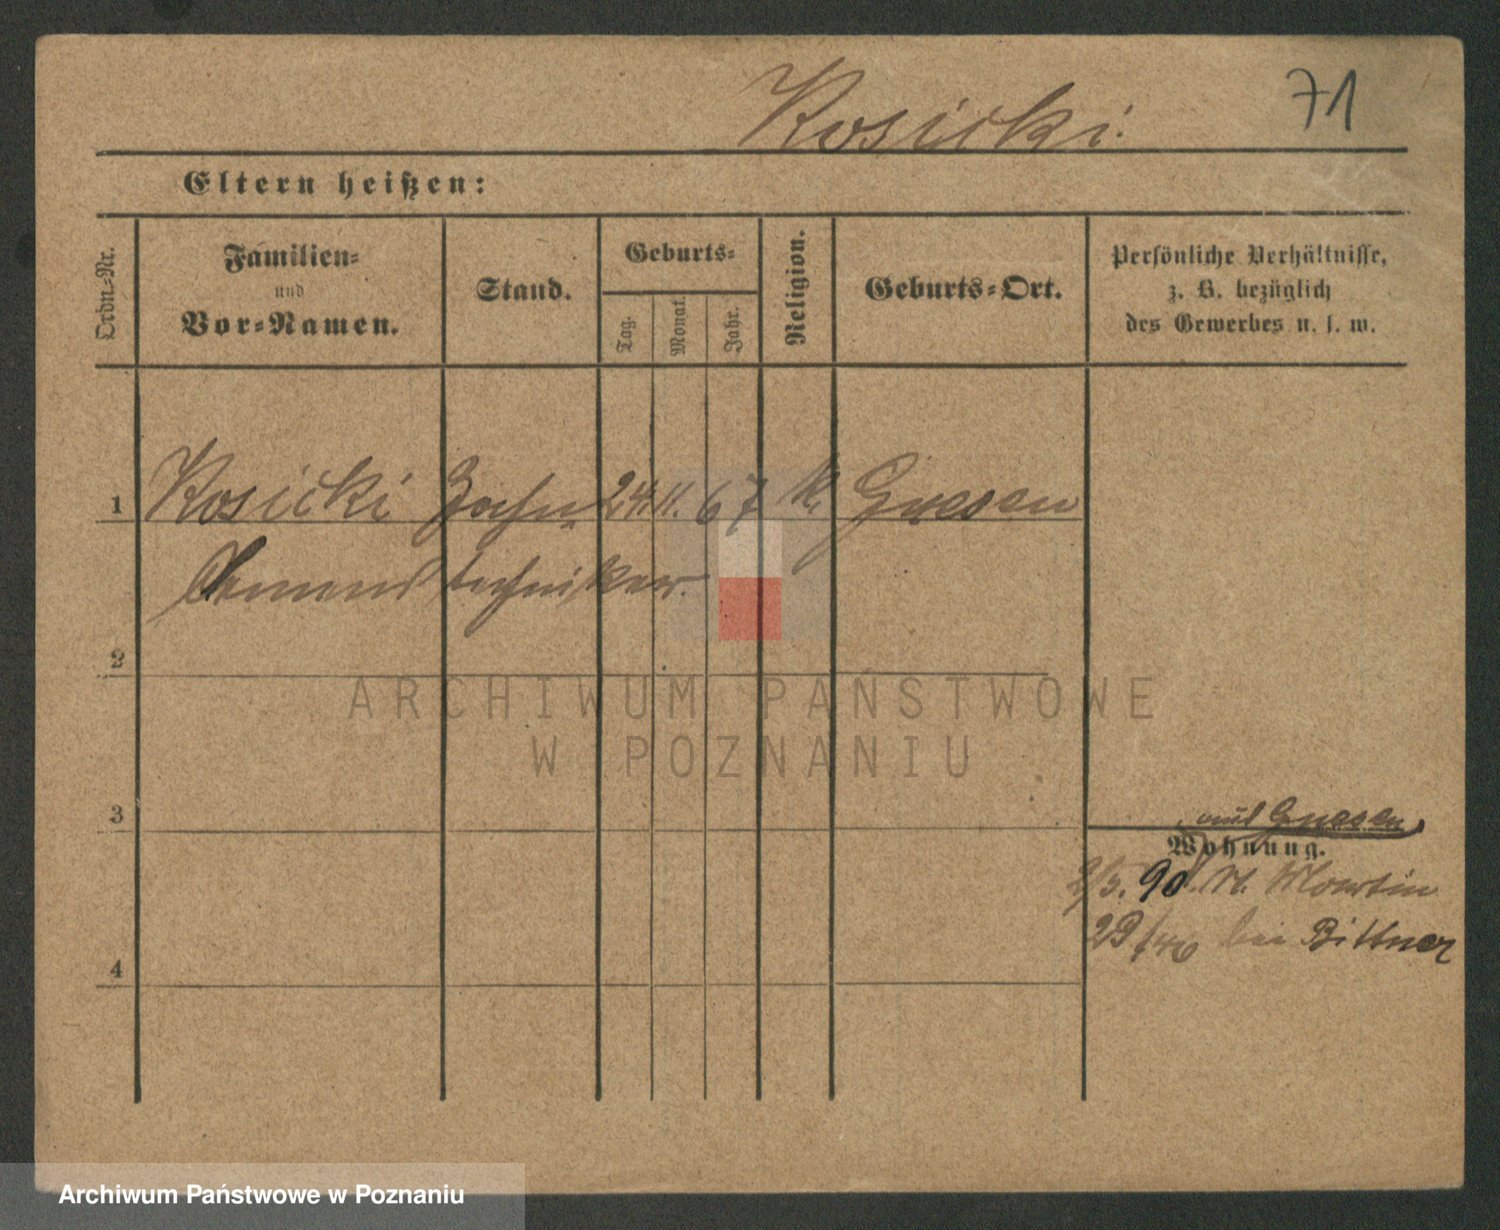 71
Kosicki.
Eltern heißen:
Ordn.-Nr.
Familien-
und
Vor-Namen.
Stand.
Geburts-
Tag.
Monat.
Jahr.
Religion.
Geburts-Ort.
Persönliche Verhältnisse,
z. B. bezüglich
des Gewerbes u. s. w.
1 Kosicki Zahn 24. 11. 67 k. Gnesen
techniker.
2
ARCHIWUM PAŃSTWOWE
W POZNANIU
3
Gnesen
Wohnung.
2/5. 90. St. Martin
bei Bittner
4
Archiwum Państwowe w Poznaniu